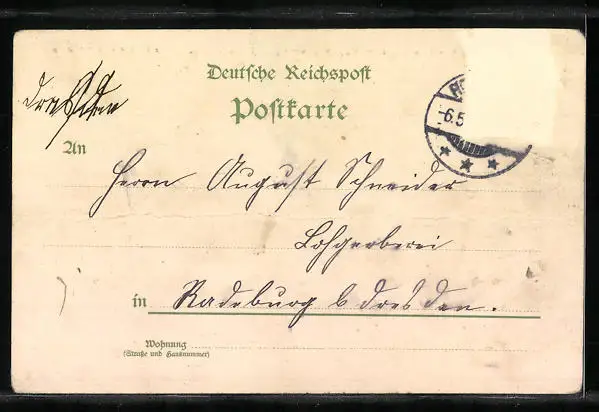 Dresden
Deutsche Reichspost
Postkarte
-6.5
An
Herrn August Schneider
Lohgerberei
in Radeburg b Dresden.
Wohnung
(Straße und Hausnummer)